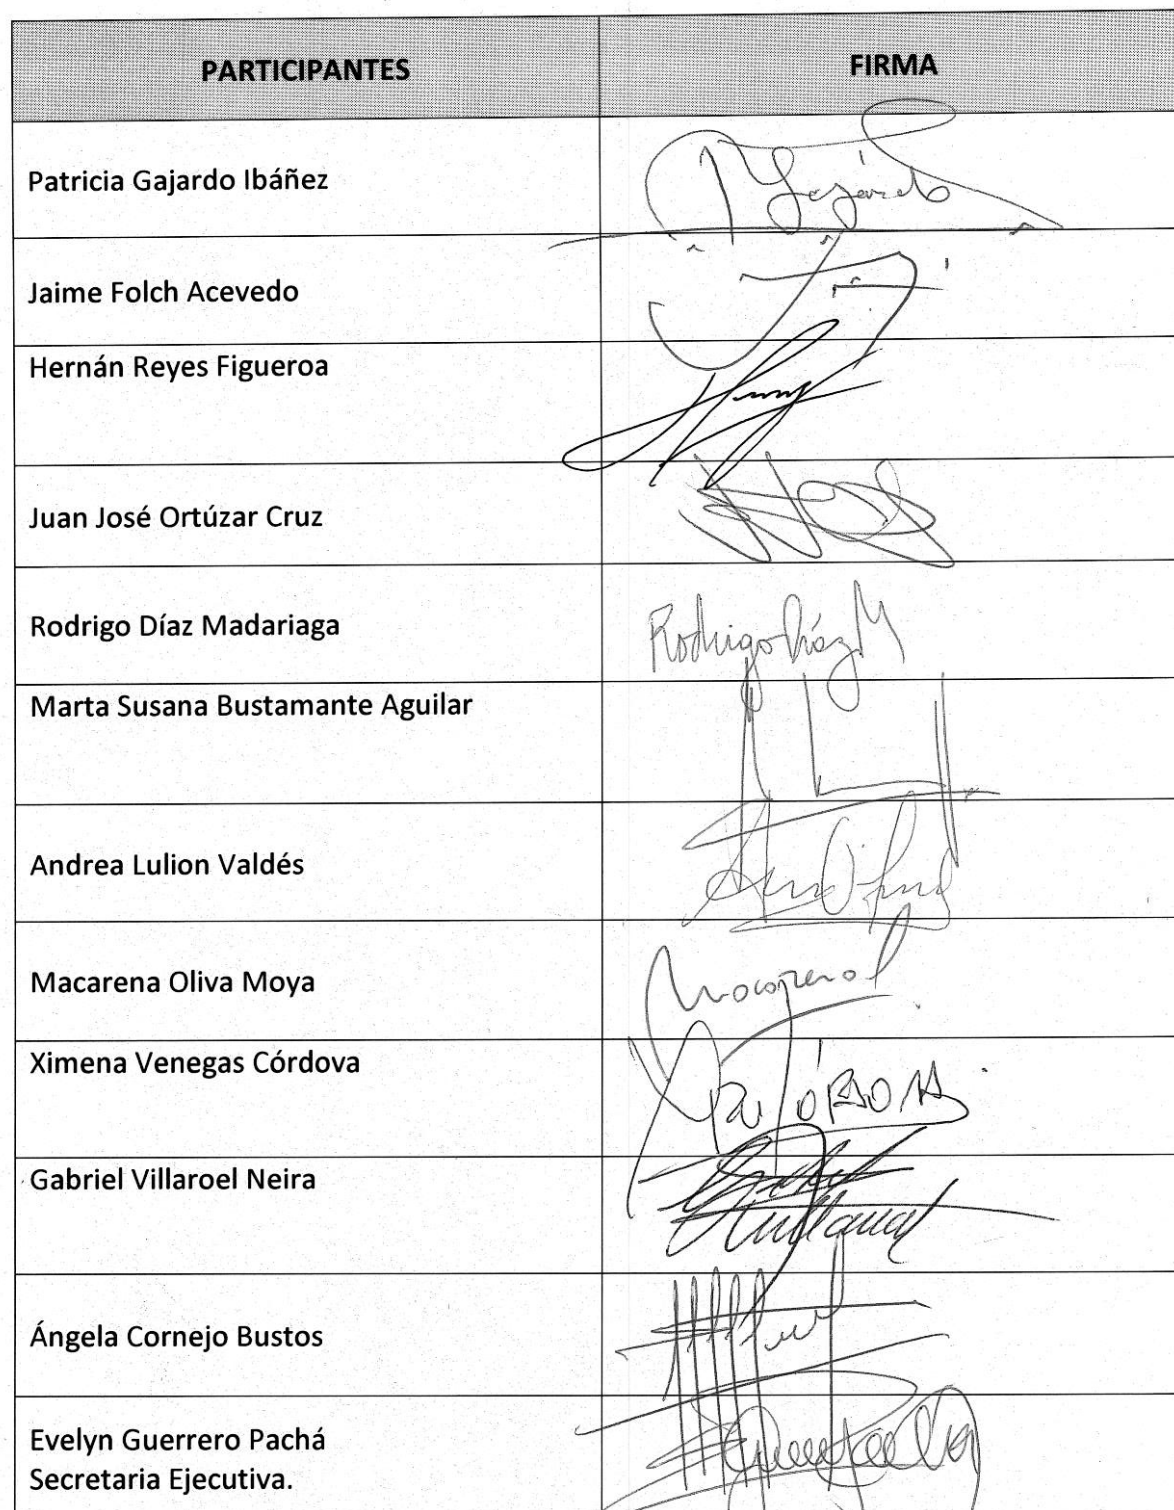 PARTICIPANTES FIRMA
Patricia Gajardo Ibáñez
Jaime Folch Acevedo
Hernán Reyes Figueroa
Juan José Ortúzar Cruz
Rodrigo Díaz Madariaga Rodrigo Díaz M
Marta Susana Bustamante Aguilar
Andrea Lulion Valdés
Macarena Oliva Moya
Ximena Venegas Córdova
Gabriel Villaroel Neira
Ángela Cornejo Bustos
Evelyn Guerrero Pachá
Secretaria Ejecutiva.